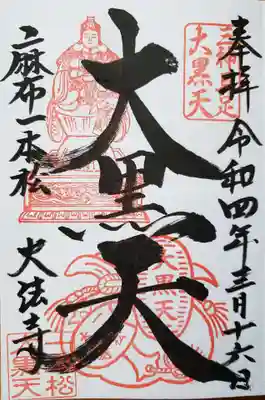 奉拝 令和四年三月十六日
大黒天
大黒天
黒天
麻布一本松 大法寺